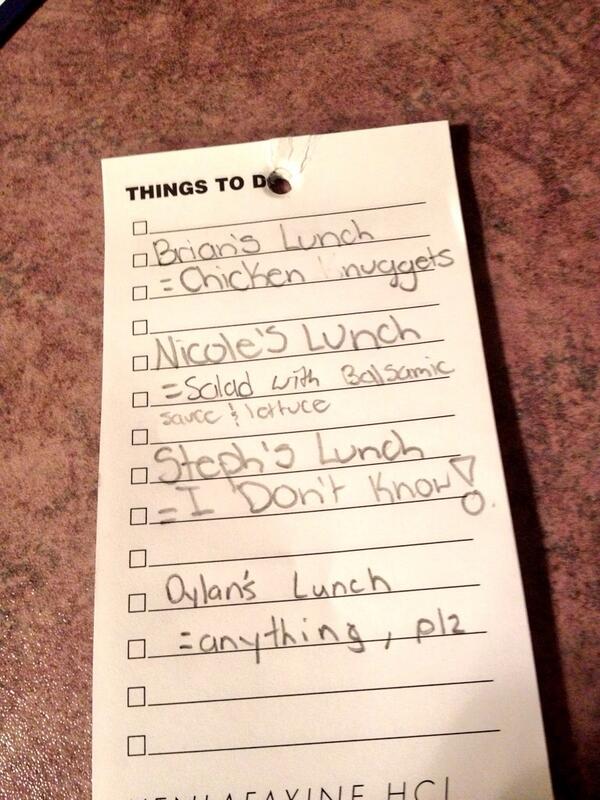 THINGS TO DO
Brian's Lunch
= Chicken nuggets
Nicole's Lunch
= Salad with Balsamic
sauce & lettuce
Steph's Lunch
= I Don't Know!
Dylan's Lunch
= anything, plz
VENLAFAXINE HCl